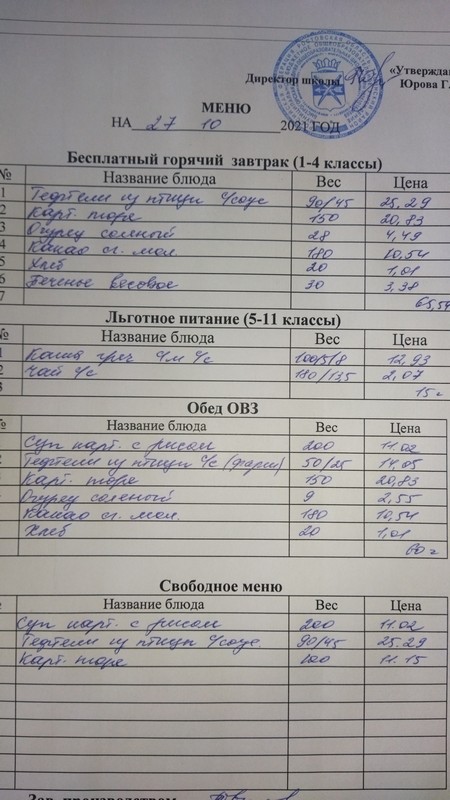 «Утвержда
Директор школы Юрова Г.
МЕНЮ
НА 27 10 2021 ГОД
Бесплатный горячий завтрак (1-4 классы)
№ Название блюда Вес Цена
1 Тефтели из птицы с/соус 90/45 25,29
2 Карт. пюре 150 20,83
3 Огурец соленой 28 4,49
4 Какао сг. мол. 180 10,54
5 Хлеб 20 1,01
6 Печенье весовое 30 3,38
7 65,54
Льготное питание (5-11 классы)
№ Название блюда Вес Цена
1 Каша греч с/м с/с 100/5/8 12,93
2 Чай с/с 180/13,5 2,07
3 15
Обед ОВЗ
№ Название блюда Вес Цена
Суп карт. с рисом 200 11.02
Тефтели из птицы с/с 50/25 14,05
Карт. пюре 150 20,83
Огурец соленой 9 2,55
Какао сг. мол. 180 10,54
Хлеб 20 1,01
60
Свободное меню
Название блюда Вес Цена
Суп карт. с рисом 200 11.02
Тефтели из птицы с/соус. 90/45 25.29
Карт. пюре 100 11.15
Зав. производством